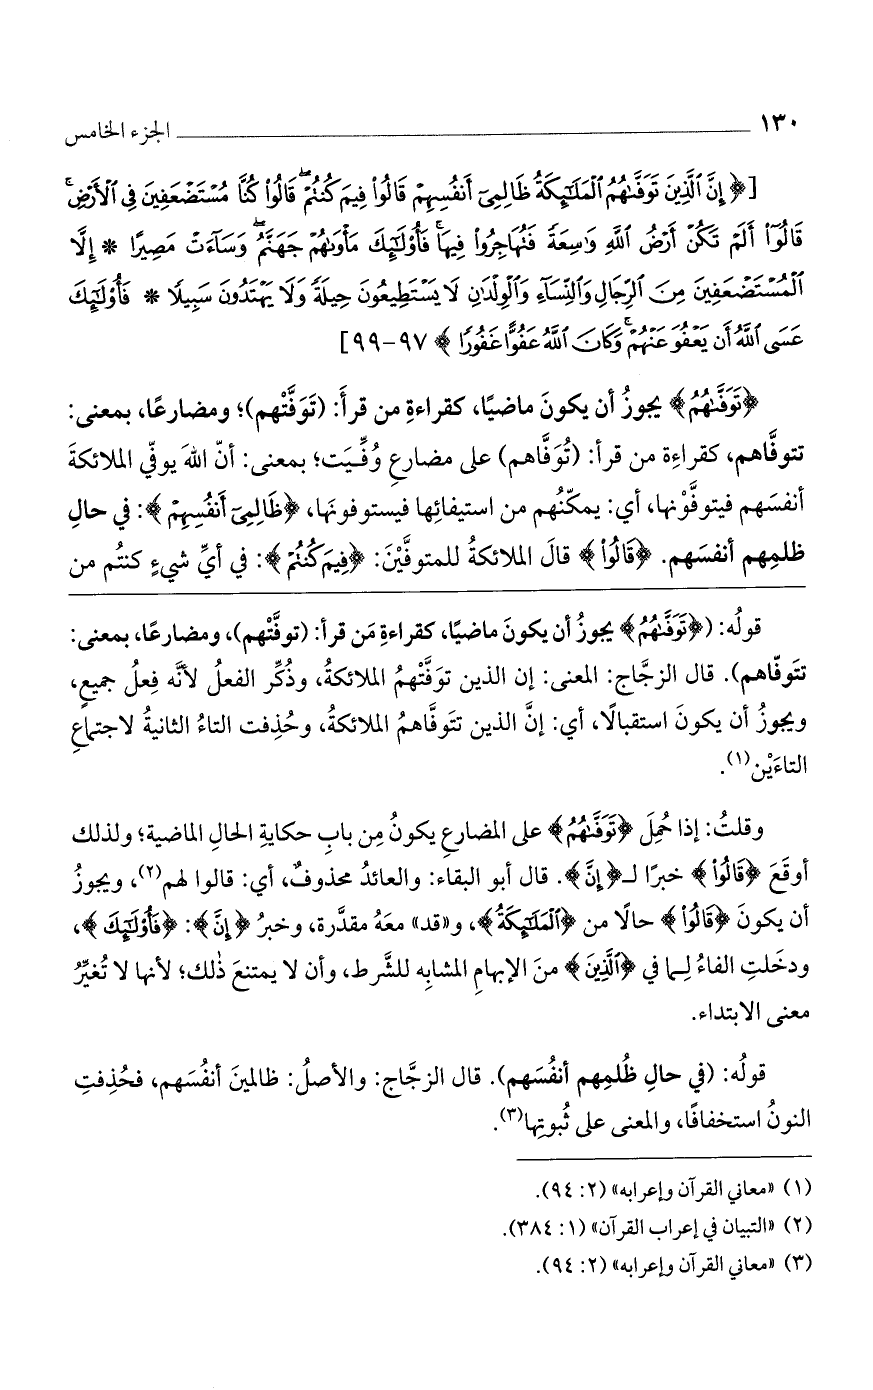 ١٣٠ الجزء الخامس
[﴿إِنَّ ٱلَّذِينَ تَوَفَّىٰهُمُ ٱلْمَلَٰٓئِكَةُ ظَالِمِىٓ أَنفُسِهِمْ قَالُوا۟ فِيمَ كُنتُمْ ۖ قَالُوا۟ كُنَّا مُسْتَضْعَفِينَ فِى ٱلْأَرْضِ ۚ
قَالُوٓا۟ أَلَمْ تَكُنْ أَرْضُ ٱللَّهِ وَٰسِعَةً فَتُهَاجِرُوا۟ فِيهَا ۚ فَأُو۟لَٰٓئِكَ مَأْوَىٰهُمْ جَهَنَّمُ ۖ وَسَآءَتْ مَصِيرًا * إِلَّا
ٱلْمُسْتَضْعَفِينَ مِنَ ٱلرِّجَالِ وَٱلنِّسَآءِ وَٱلْوِلْدَٰنِ لَا يَسْتَطِيعُونَ حِيلَةً وَلَا يَهْتَدُونَ سَبِيلًا * فَأُو۟لَٰٓئِكَ
عَسَى ٱللَّهُ أَن يَعْفُوَ عَنْهُمْ ۚ وَكَانَ ٱللَّهُ عَفُوًّا غَفُورًا﴾ ٩٧-٩٩]
﴿تَوَفَّىٰهُمُ﴾ يجوزُ أن يكونَ ماضيًا، كقراءةِ من قرأَ: (تَوَفَّتْهم)؛ ومضارعًا، بمعنى:
تتوفَّاهم، كقراءِة من قرأ: (تُوَفَّاهم) على مضارعِ وُفِّيَت؛ بمعنى: أنّ اللهَ يوفّي الملائكةَ
أنفسَهم فيتوفَّوْنها، أي: يمكّنُهم من استيفائِها فيستوفونَها، ﴿ظَالِمِىٓ أَنفُسِهِمْ﴾: في حالِ
ظلمِهم أنفسَهم. ﴿قَالُوا۟﴾ قالَ الملائكةُ للمتوفَّيْنَ: ﴿فِيمَ كُنتُمْ﴾: في أيِّ شيءٍ كنتُم من
قولُه: (﴿تَوَفَّىٰهُمُ﴾ يجوزُ أن يكونَ ماضيًا، كقراءةِ مَن قرأ: (توفَّتْهم)، ومضارعًا، بمعنى:
تتَوفّاهم). قال الزجَّاج: المعنى: إن الذين توَفَّتْهمُ الملائكةُ، وذُكِّر الفعلُ لأنَّه فِعلُ جميعٍ،
ويجوزُ أن يكونَ استقبالًا، أي: إنَّ الذين تتَوفَّاهمُ الملائكةُ، وحُذِفت التاءُ الثانيةُ لاجتماعِ
التاءَيْن(١).
وقلتُ: إذا حُمِلَ ﴿تَوَفَّىٰهُمُ﴾ على المضارعِ يكونُ مِن بابِ حكايةِ الحالِ الماضية؛ ولذلك
أوقَعَ ﴿قَالُوا۟﴾ خبرًا لـ﴿إِنَّ﴾. قال أبو البقاء: والعائدُ محذوفٌ، أي: قالوا لهم(٢)، ويجوزُ
أن يكونَ ﴿قَالُوا۟﴾ حالًا من ﴿ٱلْمَلَٰٓئِكَةُ﴾، و«قد» معَهُ مقدَّرة، وخبرُ ﴿إِنَّ﴾: ﴿فَأُو۟لَٰٓئِكَ﴾،
ودخَلتِ الفاءُ لِـما في ﴿ٱلَّذِينَ﴾ منَ الإبهامِ المشابِه للشَّرط، وأن لا يمتنعَ ذٰلك؛ لأنها لا تُغيِّرُ
معنى الابتداء.
قولُه: (في حالِ ظُلمِهم أنفُسَهم). قال الزجَّاج: والأصلُ: ظالمينَ أنفُسَهم، فحُذِفتِ
النونُ استخفافًا، والمعنى على ثُبوتِها(٣).
(١) «معاني القرآن وإعرابه» (٢: ٩٤).
(٢) «التبيان في إعراب القرآن» (١: ٣٨٤).
(٣) «معاني القرآن وإعرابه» (٢: ٩٤).